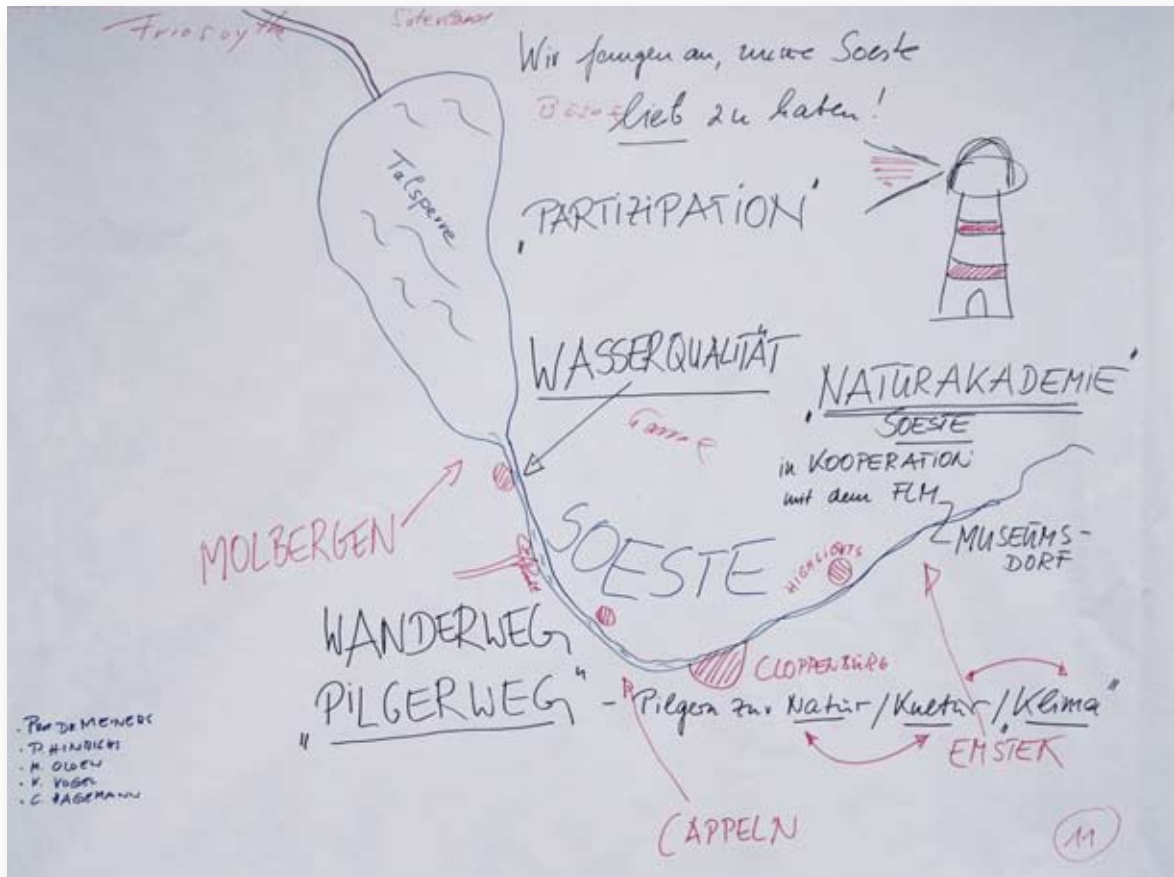 Friesoythe
Saterland
Wir fangen an, unsere Soeste
lieb zu haben!
Talsperre
"PARTIZIPATION"
WASSERQUALITÄT
"NATURAKADEMIE"
SOESTE
in KOOPERATION
mit dem FLM
MUSEUMS-
DORF
MOLBERGEN
SOESTE
HIGHLIGHTS
WANDERWEG
CLOPPENBURG
"PILGERWEG" - Pilgern zur Natur/Kultur/"Klima"
EMSTEK
CAPPELN
· Prof DR MEINERS
· P. HINRICHS
· M. OLDEN
· K. VOGEL
· C. HAGEMANN
11